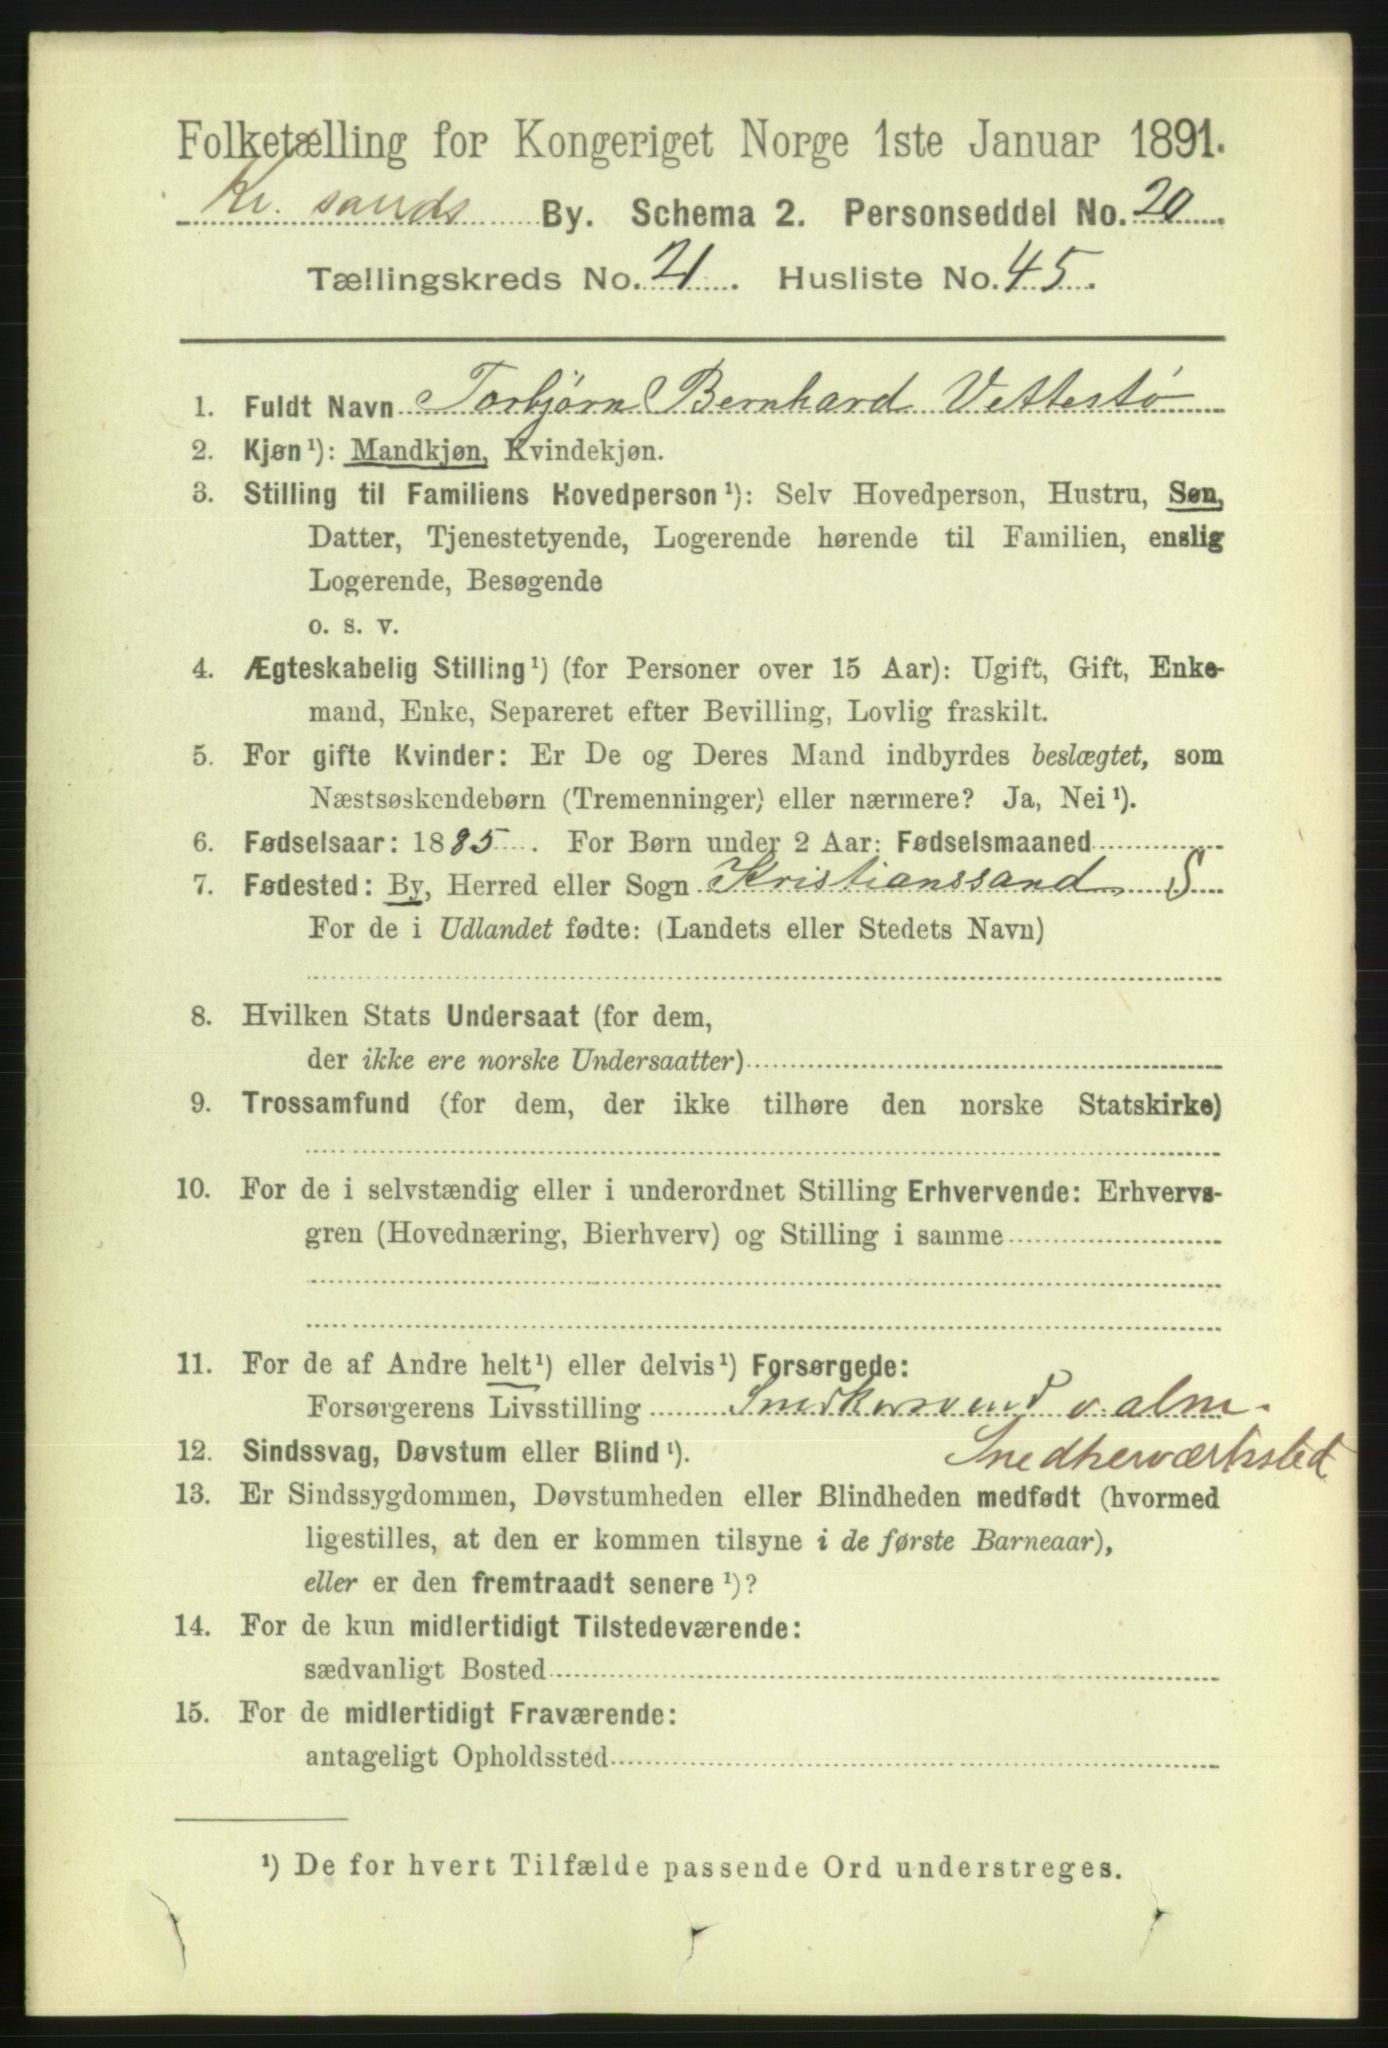 Folketælling for Kongeriget Norge 1ste Januar 1891.
Kr. sands By. Schema 2. Personseddel No. 20.
Tællingskreds No. 21. Husliste No. 45.
1. Fuldt Navn Torbjørn Bernhard Vettestø
2. Kjøn¹): Mandkjøn, Kvindekjøn.
3. Stilling til Familiens Hovedperson¹): Selv Hovedperson, Hustru, Søn,
Datter, Tjenestetyende, Logerende hørende til Familien, enslig
Logerende, Besøgende
o. s. v.
4. Ægteskabelig Stilling¹) (for Personer over 15 Aar): Ugift, Gift, Enke-
mand, Enke, Separeret efter Bevilling, Lovlig fraskilt.
5. For gifte Kvinder: Er De og Deres Mand indbyrdes beslægtet, som
Næstsøskendebørn (Tremenninger) eller nærmere? Ja, Nei¹).
6. Fødselsaar: 1885. For Børn under 2 Aar: Fødselsmaaned
7. Fødested: By, Herred eller Sogn Kristianssand S
For de i Udlandet fødte: (Landets eller Stedets Navn)
8. Hvilken Stats Undersaat (for dem,
der ikke ere norske Undersaatter)
9. Trossamfund (for dem, der ikke tilhøre den norske Statskirke)
10. For de i selvstændig eller i underordnet Stilling Erhvervende: Erhvervs-
gren (Hovednæring, Bierhverv) og Stilling i samme
11. For de af Andre helt¹) eller delvis¹) Forsørgede:
Forsørgerens Livsstilling Snedkersvend v. alm.
Snedkerværksted
12. Sindssvag, Døvstum eller Blind¹).
13. Er Sindssygdommen, Døvstumheden eller Blindheden medfødt (hvormed
ligestilles, at den er kommen tilsyne i de første Barneaar),
eller er den fremtraadt senere¹)?
14. For de kun midlertidigt Tilstedeværende:
sædvanligt Bosted
15. For de midlertidigt Fraværende:
antageligt Opholdssted
¹) De for hvert Tilfælde passende Ord understreges.